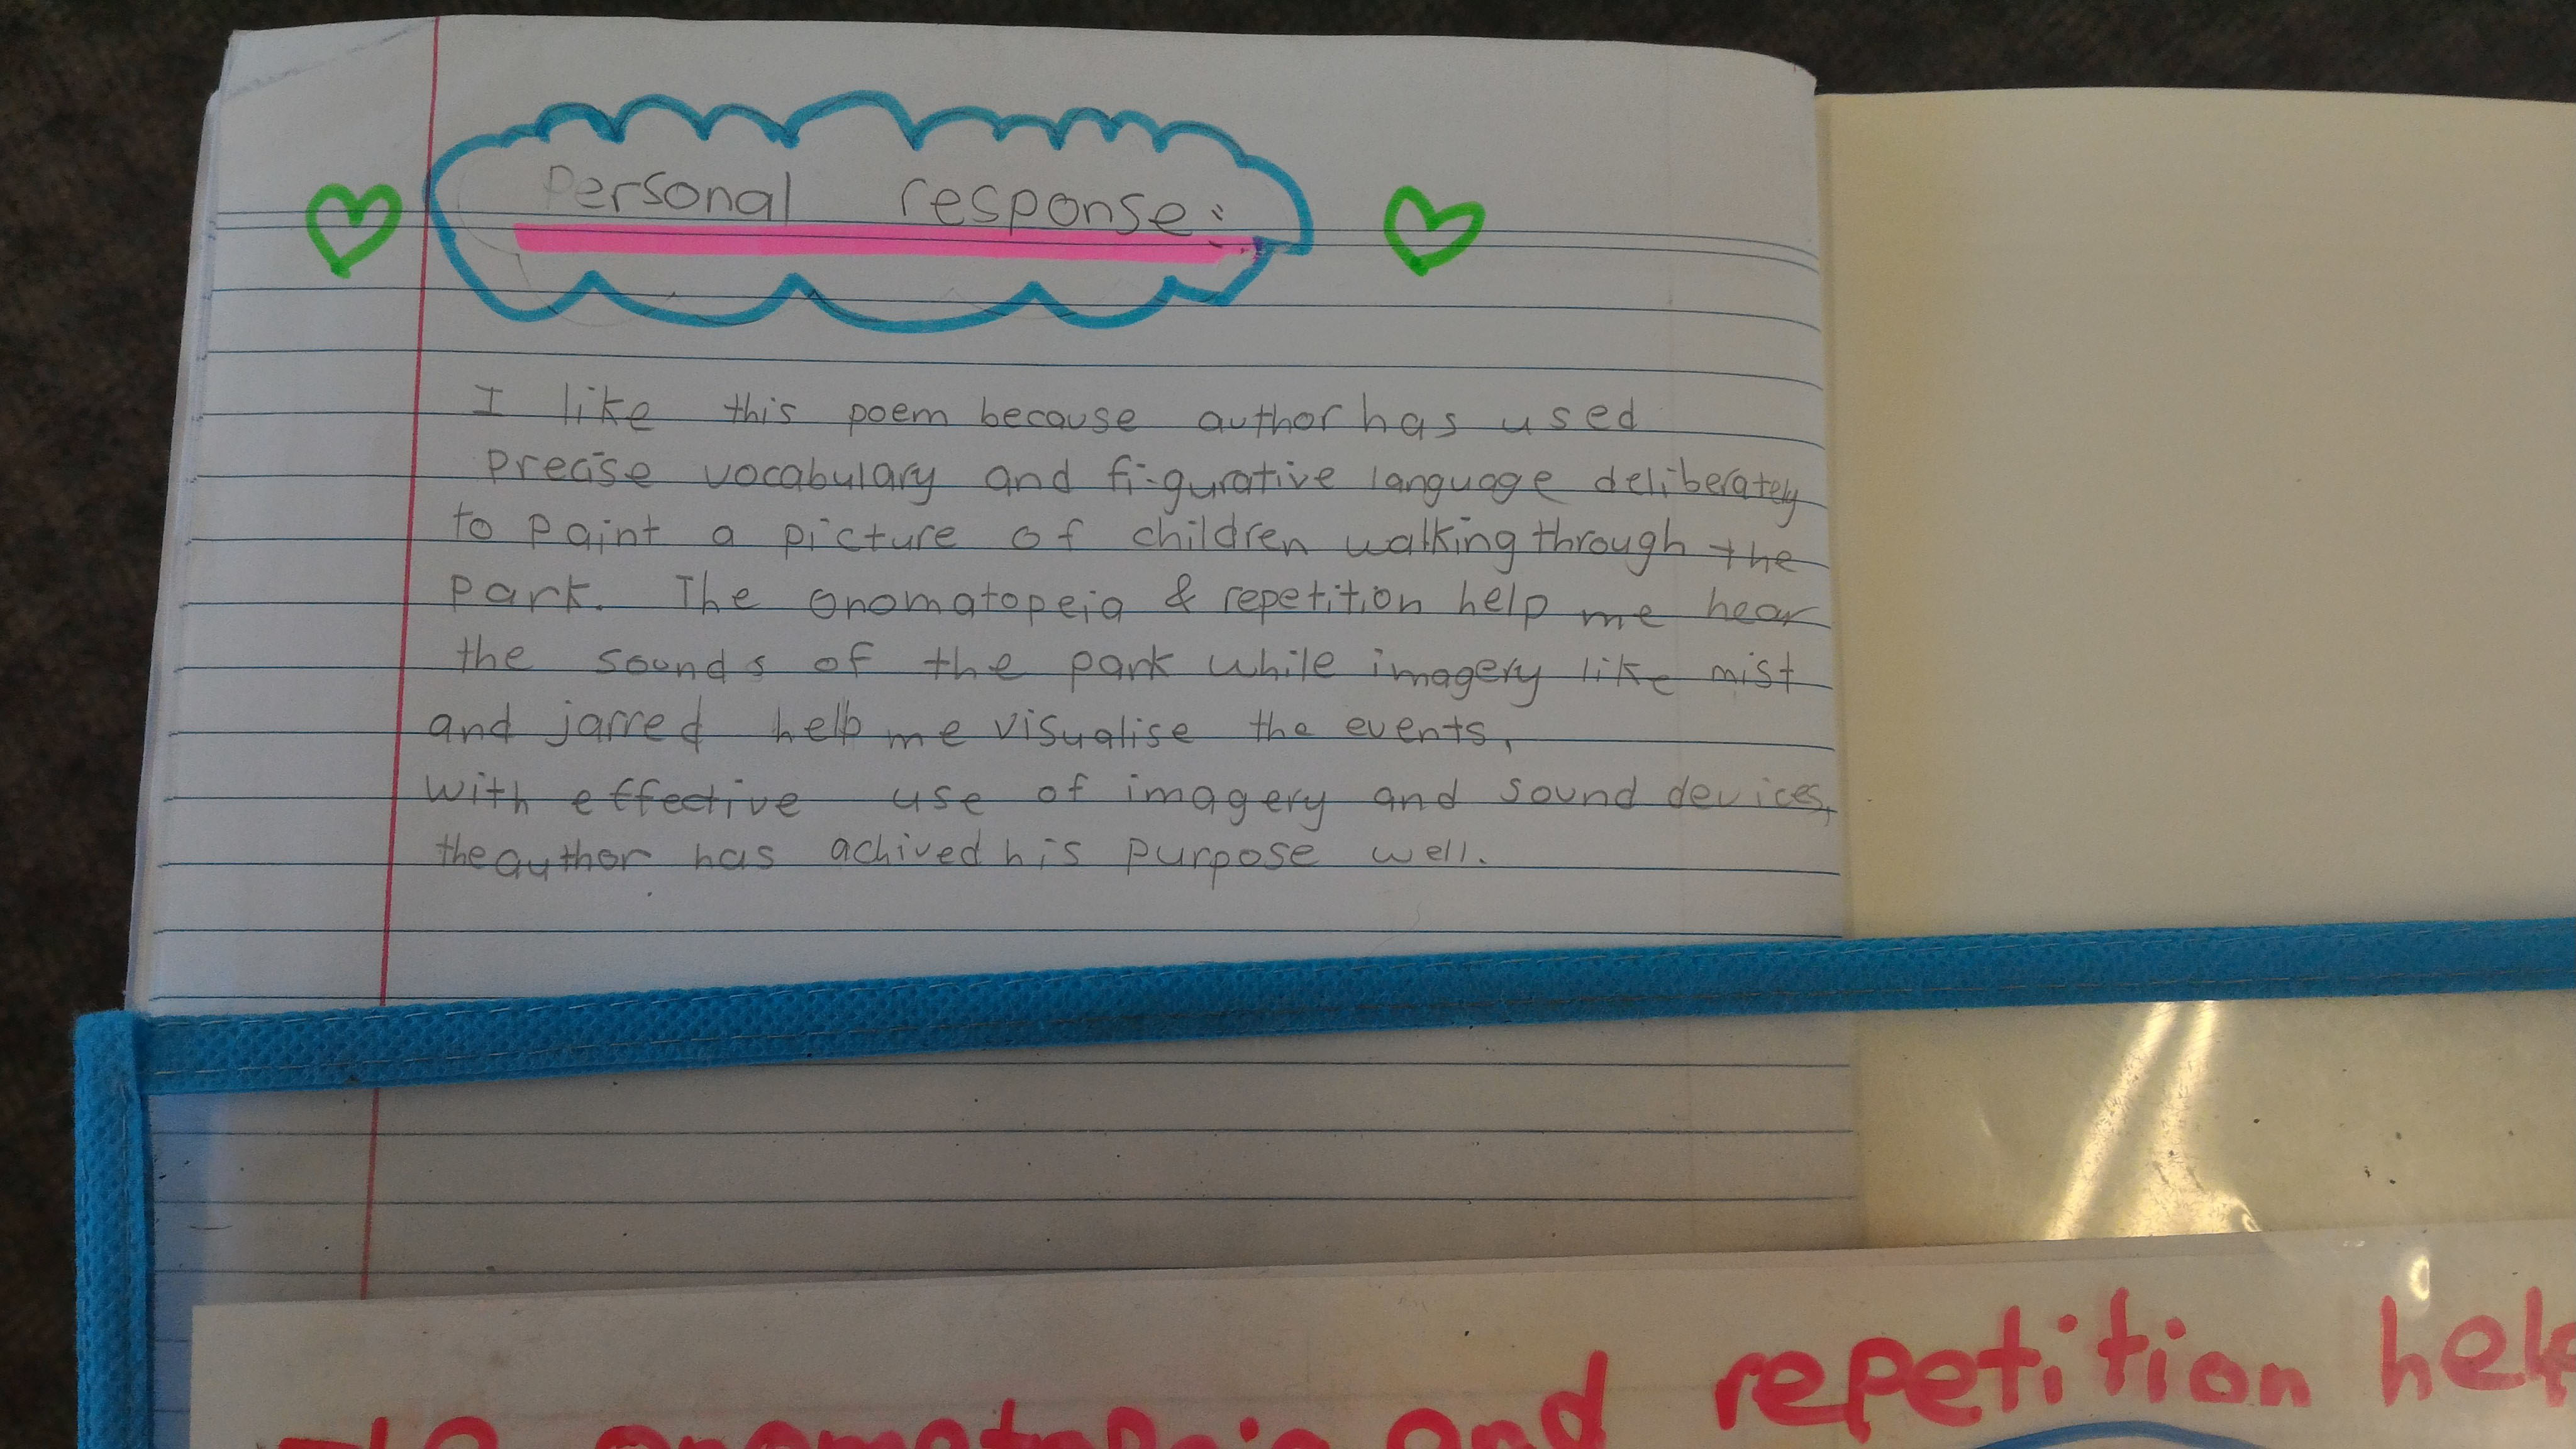 Personal response:
I like this poem because author has used
precise vocabulary and figurative language deliberately
to paint a picture of children walking through the
park. The onomatopeia & repetition help me hear
the sounds of the park while imagery like mist
and jarred help me visualise the events,
with effective use of imagery and sound devices,
the author has achived his purpose well.
repetition
onomatopeia and